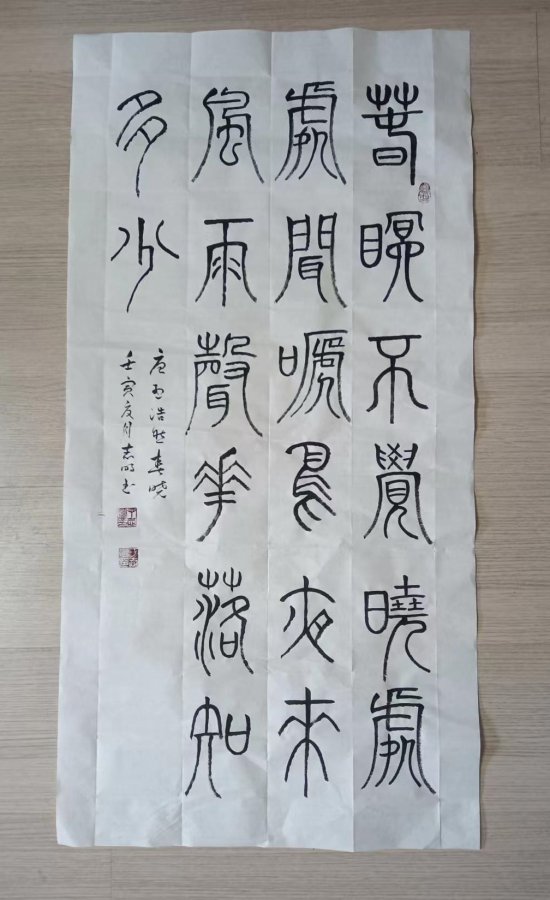 春眠不覺曉處
處聞啼鳥夜來
風雨聲花落知
多少
唐孟浩然春晓
壬寅夏月志明书